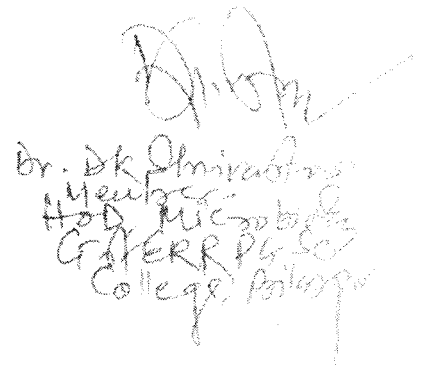 Dr. DK Shrivastava
Member
HoD, Microbiology
Govt ERR PG Sc
College, Bilaspur